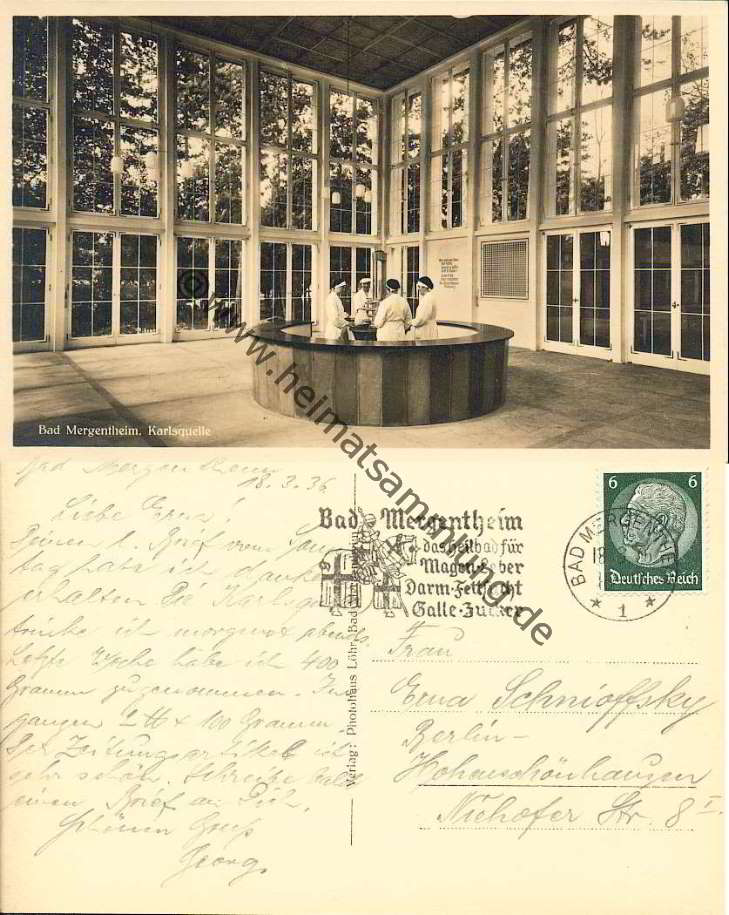 Bad Mergentheim. Karlsquelle
www.heimatsammlung.de
Bad Mergentheim
18.3.36
Liebe Erna!
Deinen l. Brief vom Sonn
tag habe ich dankend
erhalten. Die Karlsqu
trinke ich morgens u. abends.
Letzte Woche habe ich 400
Gramm zugenommen. Ins
gangen 2 ℔ x 100 Gramm
Der Zeitungsartikel ist
sehr schön. Schreibe bald
einen Brief an Dich.
Schönen Gruß
Georg.
Verlag: Photohaus Löhr, Bad Mergentheim
Bad Mergentheim
das Heilbad für
Magen-Leber
Darm-Fettsucht
Galle-Zucker
BAD MERGENTHEIM
18
1
6 6
Deutsches Reich
Frau
Erna Schnioffsky
Berlin-
Hohenschönhausen
Niehofer Str. 8 I.